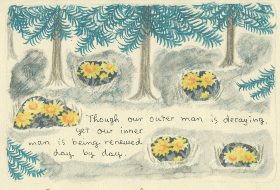 Though our outer man is decaying,
yet our inner
man is being renewed
day by day.